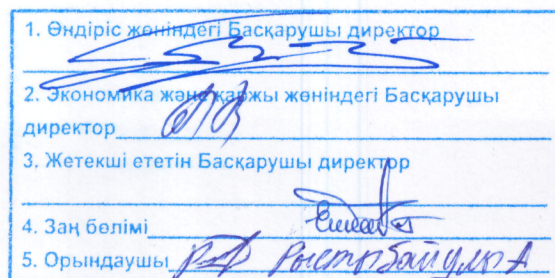 1. Өндіріс жөніндегі Басқарушы директор
2. Экономика және қаржы жөніндегі Басқарушы
директор
3. Жетекші ететін Басқарушы директор
4. Заң бөлімі
5. Орындаушы Рыстыбайұлы А